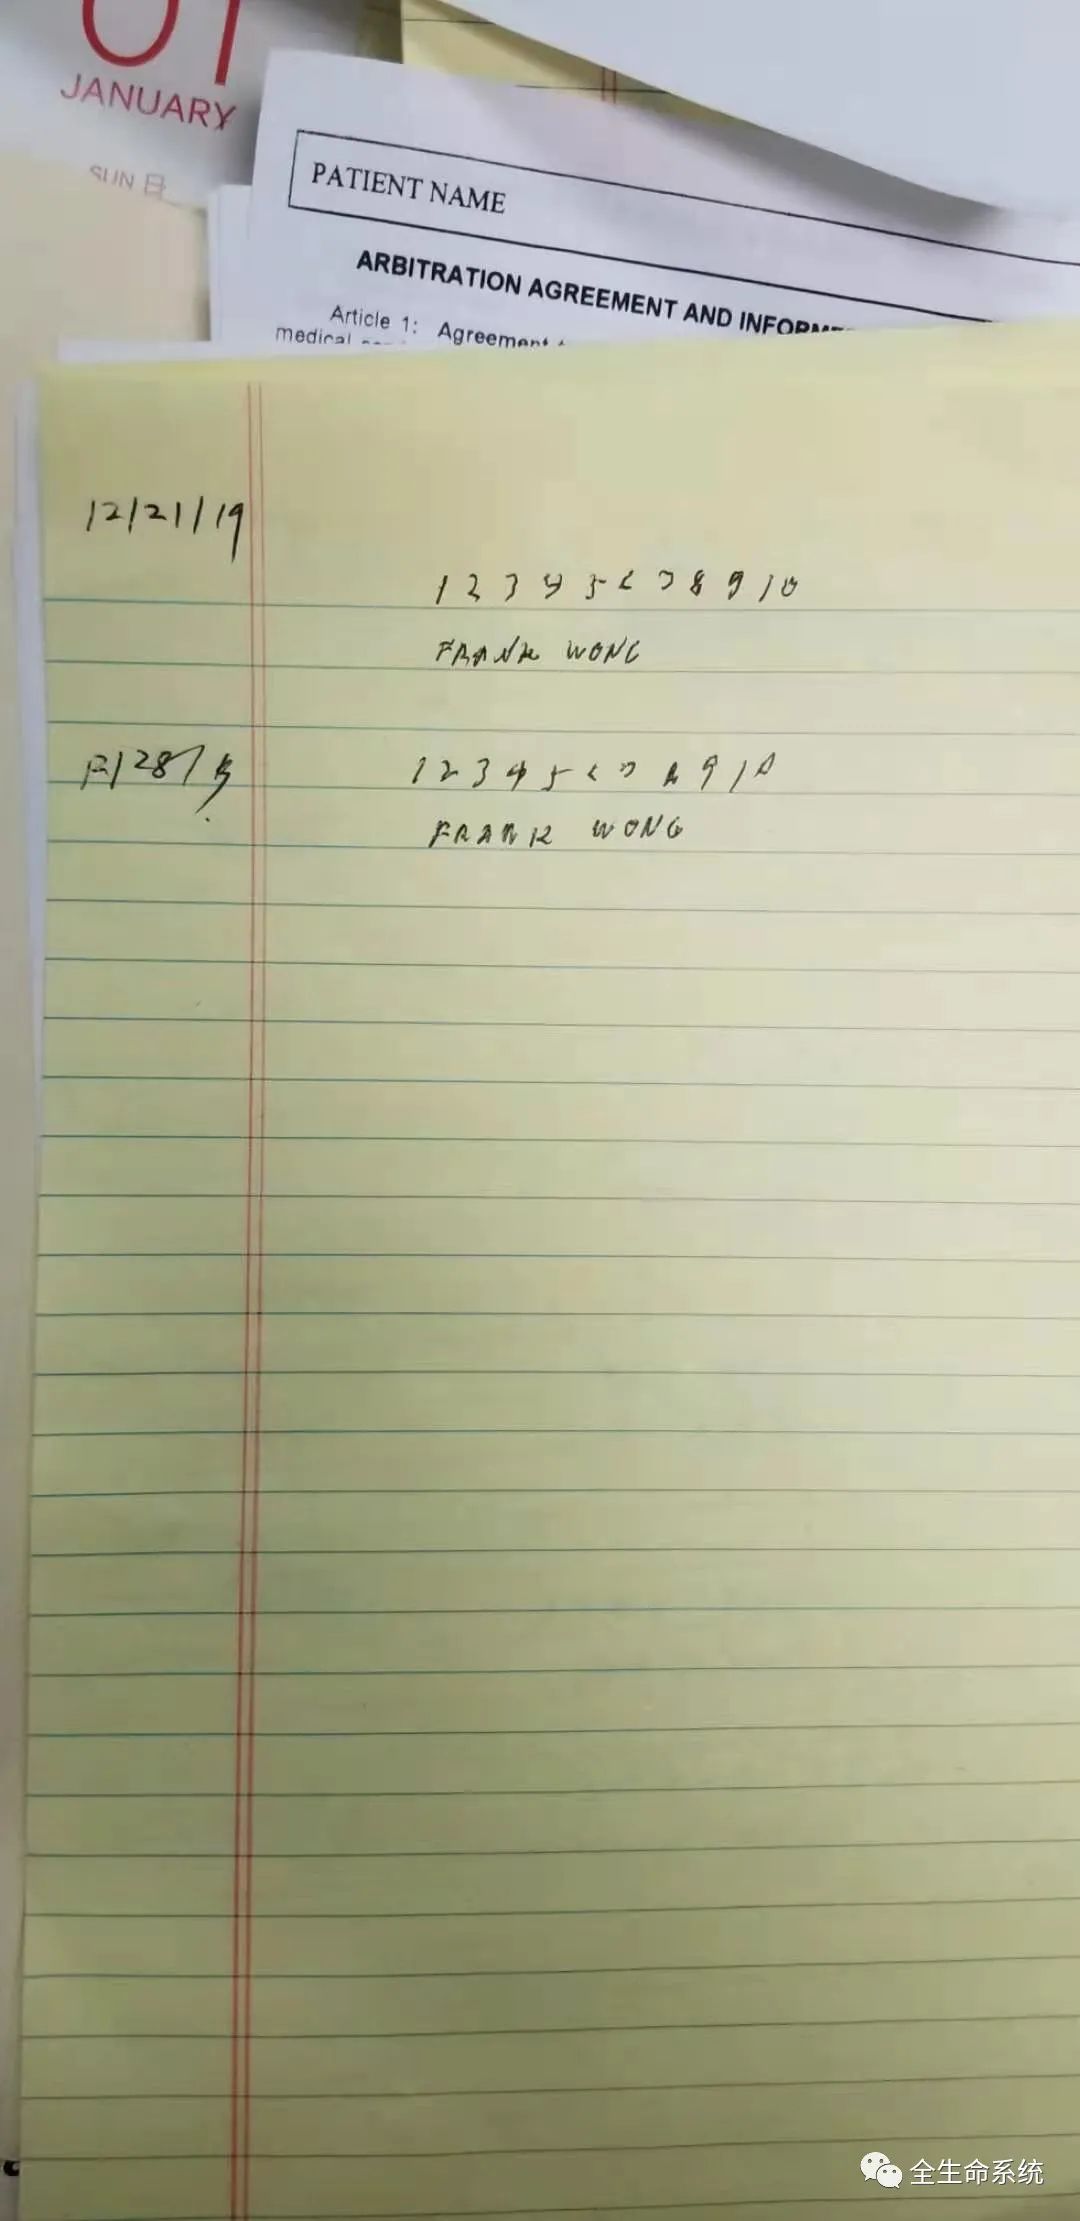 01
JANUARY
SUN 日
PATIENT NAME
ARBITRATION AGREEMENT AND
Article 1: Agreement
medical
12/21/19
1 2 3 4 5 6 7 8 9 10
FRANK WONG
12/28/19
1 2 3 4 5 6 7 8 9 10
FRANK WONG
全生命系统